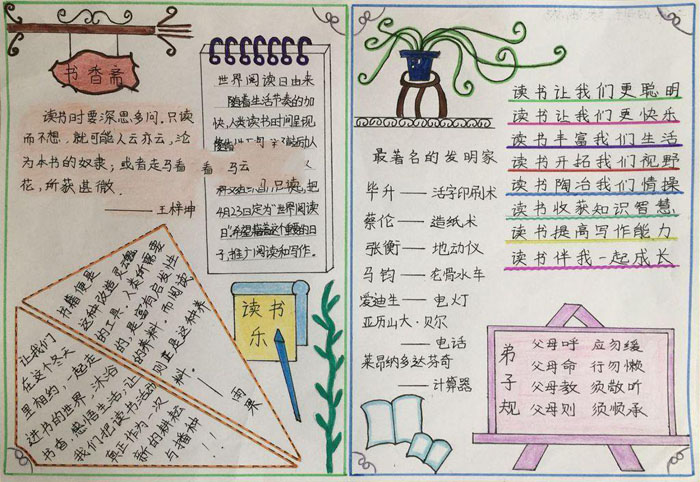 书香斋
读书时要深思多问。只读
而不想,就可能人云亦云,沦
为本书的奴隶,或者走马看 看 马云
花,所获甚微。
——王梓坤
世界阅读日由来
随着生活节奏的加
快,人类读书时间呈现
只读。把
4月23日定为"世界阅读
日"希望藉着这个重要的日
子,推广阅读和写作。
书籍便是
这种改造灵魂
的工具。人类所需要
的,是富有启发性
的养料。而阅读,
则正是这种养
料。——雨果
让我们
在这个冬天
里相约,一起走
进书的世界,沐浴
书香,感悟生活,让
我们把读书活动
真正作为一次
新的耕耘
与播种!!!
读书
乐
最著名的发明家
毕升——活字印刷术
蔡伦——造纸术
张衡——地动仪
马钧——龙骨水车
爱迪生——电灯
亚历山大·贝尔
——电话
莱昂纳多达芬奇
——计算器
读书让我们更聪明
读书让我们更快乐
读书丰富我们生活
读书开拓我们视野
读书陶冶我们情操
读书收获知识智慧
读书提高写作能力
读书伴我一起成长
弟子规
父母呼 应勿缓
父母命 行勿懒
父母教 须敬听
父母则 须顺承